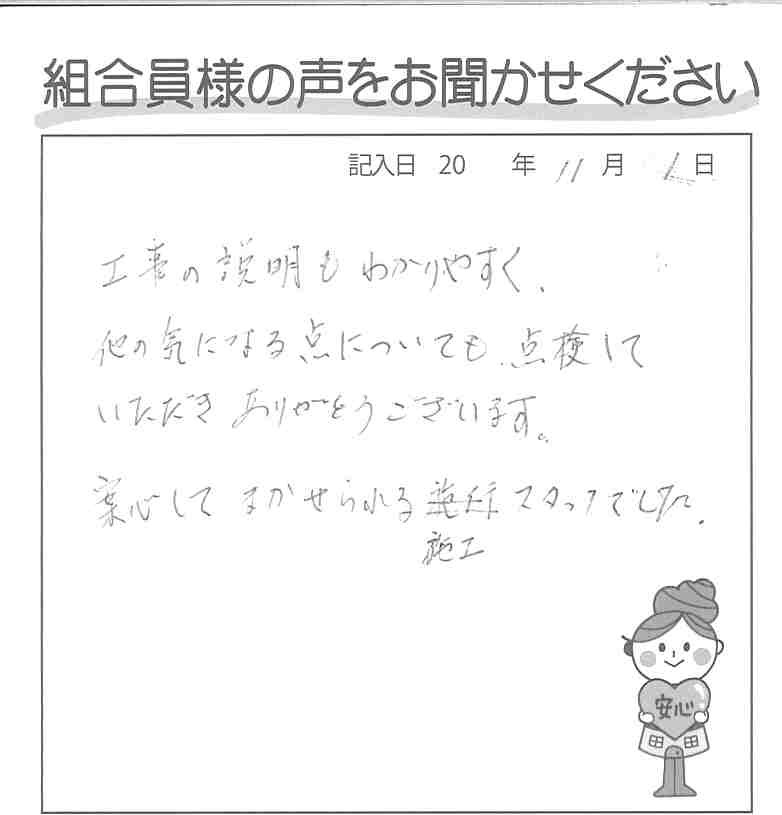 組合員様の声をお聞かせください
記入日 20 年 11月 1日
工事の説明もわかりやすく、
他の気になる点についても、点検して
いただきありがとうございます。
案心してまかせられる施行スタッフでした。
施工
安心